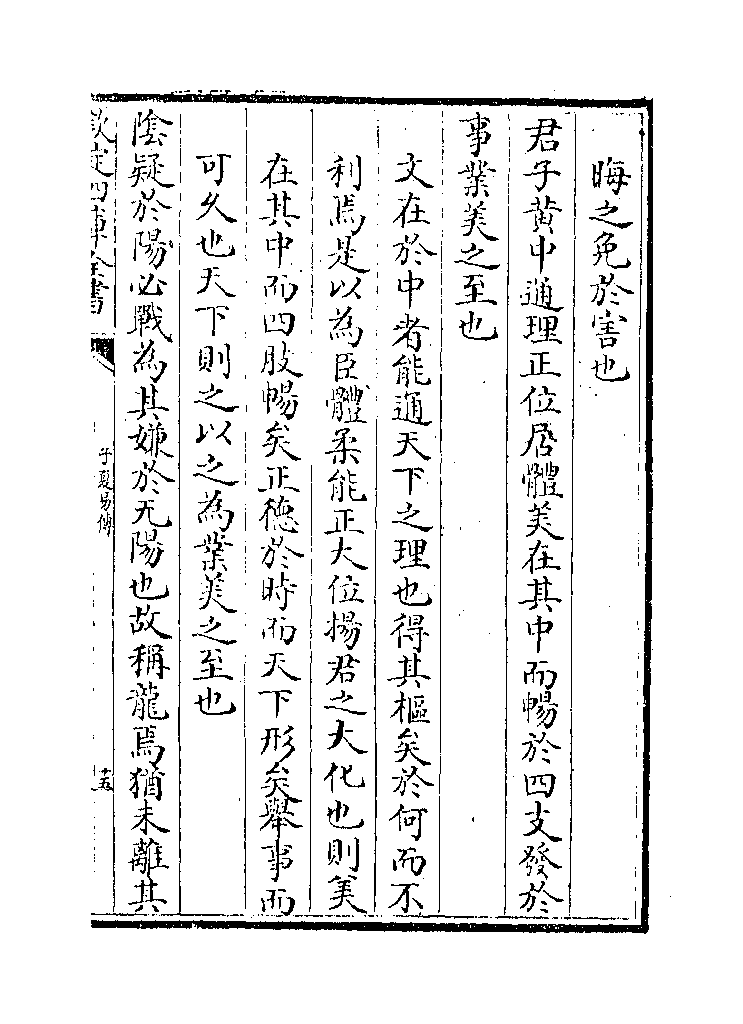 晦之免於害也
君子黄中通理正位居體美在其中而暢於四支發於
事業美之至也
文在於中者能通天下之理也得其樞矣於何而不
利焉是以為臣體柔能正大位揚君之大化也則美
在其中而四肢暢矣正德於時而天下形矣舉事而
可久也天下則之以之為業美之至也
陰疑於陽必戰為其嫌於无陽也故稱龍焉猶未離其
欽定四庫全書
子夏易傳
十五